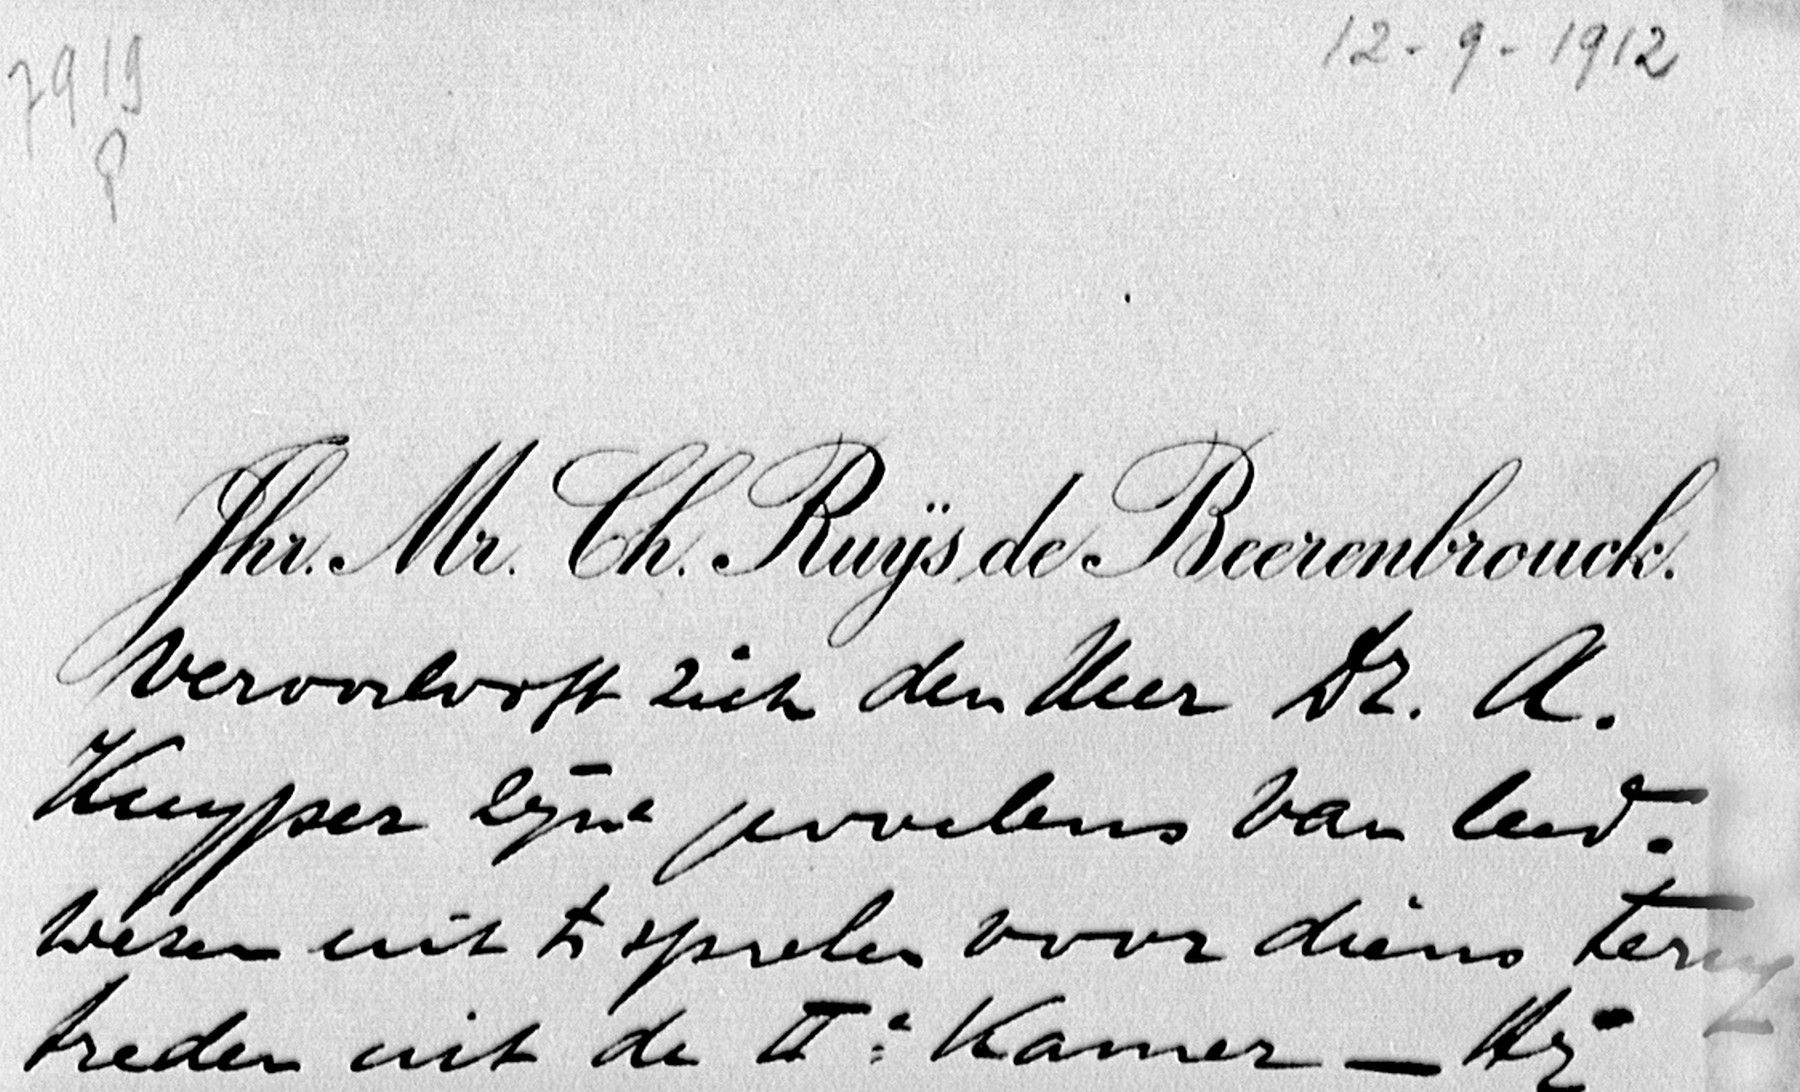 7919
P
12-9-1912
Jhr. Mr. Ch. Ruÿs de Beerenbrouck.
veroorlooft zich den Heer Dr. A.
Kuyper zijne gevoelens van leed-
wezen uit te spreken voor diens terug
treden uit de IIe Kamer — Hij